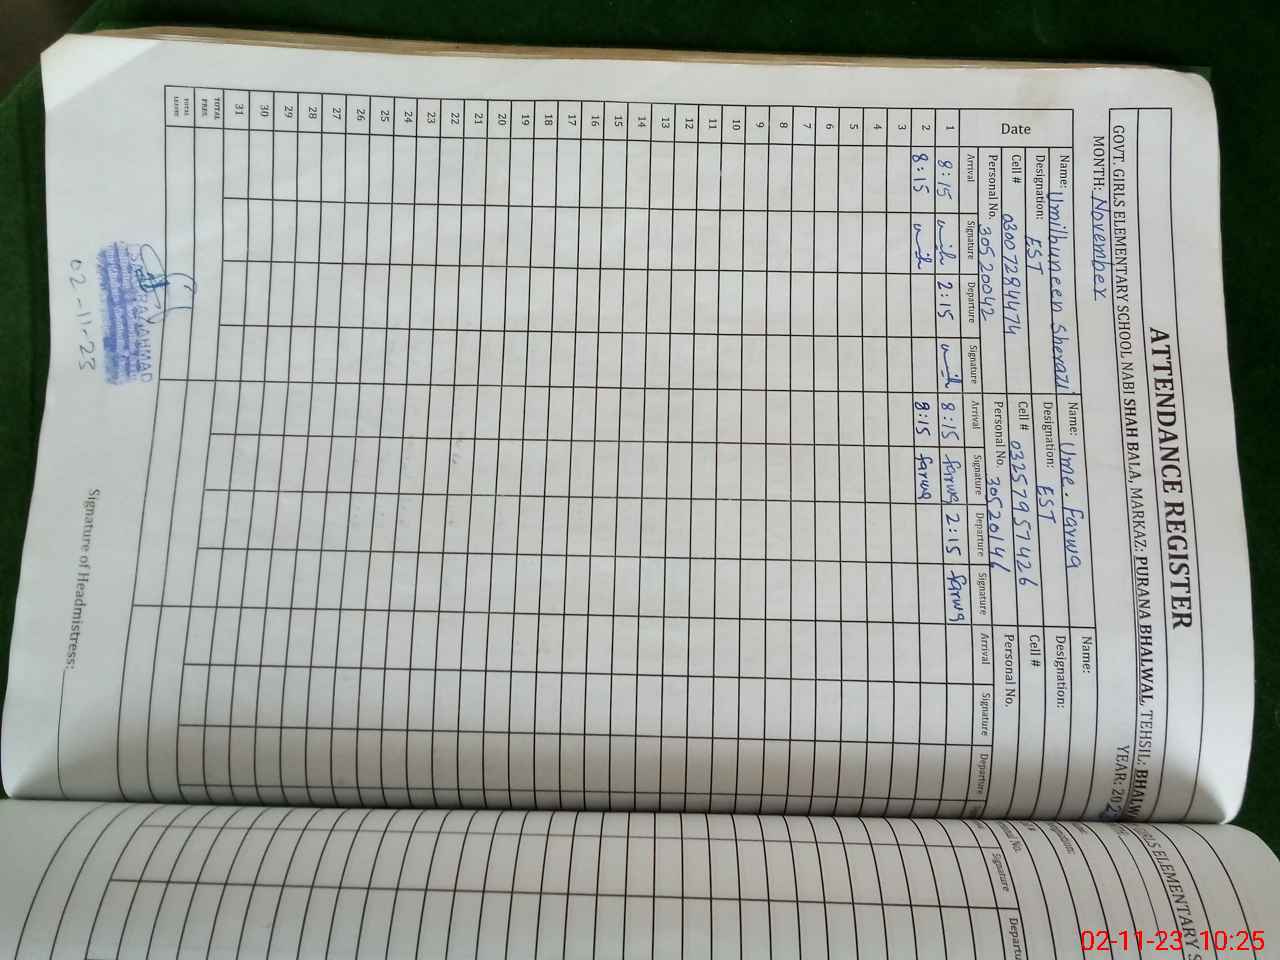 ATTENDANCE REGISTER
GOVT. GIRLS ELEMENTARY SCHOOL NABI SHAH BALA, MARKAZ: PURANA BHALWAL, TEHSIL: BHALW
MONTH: November YEAR: 202
Date
Name: Umilbuneen Sherazi
Designation: EST
Cell # 03007284474
Personal No. 30520042
Name: Ume. Farwa
Designation: EST
Cell # 03257957426
Personal No. 30520146
Name:
Designation:
Cell #
Personal No.
Arrival Signature Departure Signature Arrival Signature Departure Signature Arrival Signature Departure
1 8:15 2:15 8:15 farwa 2:15 farwa
2 8:15 8:15 farwa
3
4
5
6
7
8
9
10
11
12
13
14
15
16
17
18
19
20
21
22
23
24
25
26
27
28
29
30
31
TOTAL PRES.
TOTAL LEAVE
AHMAD
02-11-23
Signature of Headmistress:
GIRLS ELEMENTARY S
Signature
Departu
02-11-23 10:25